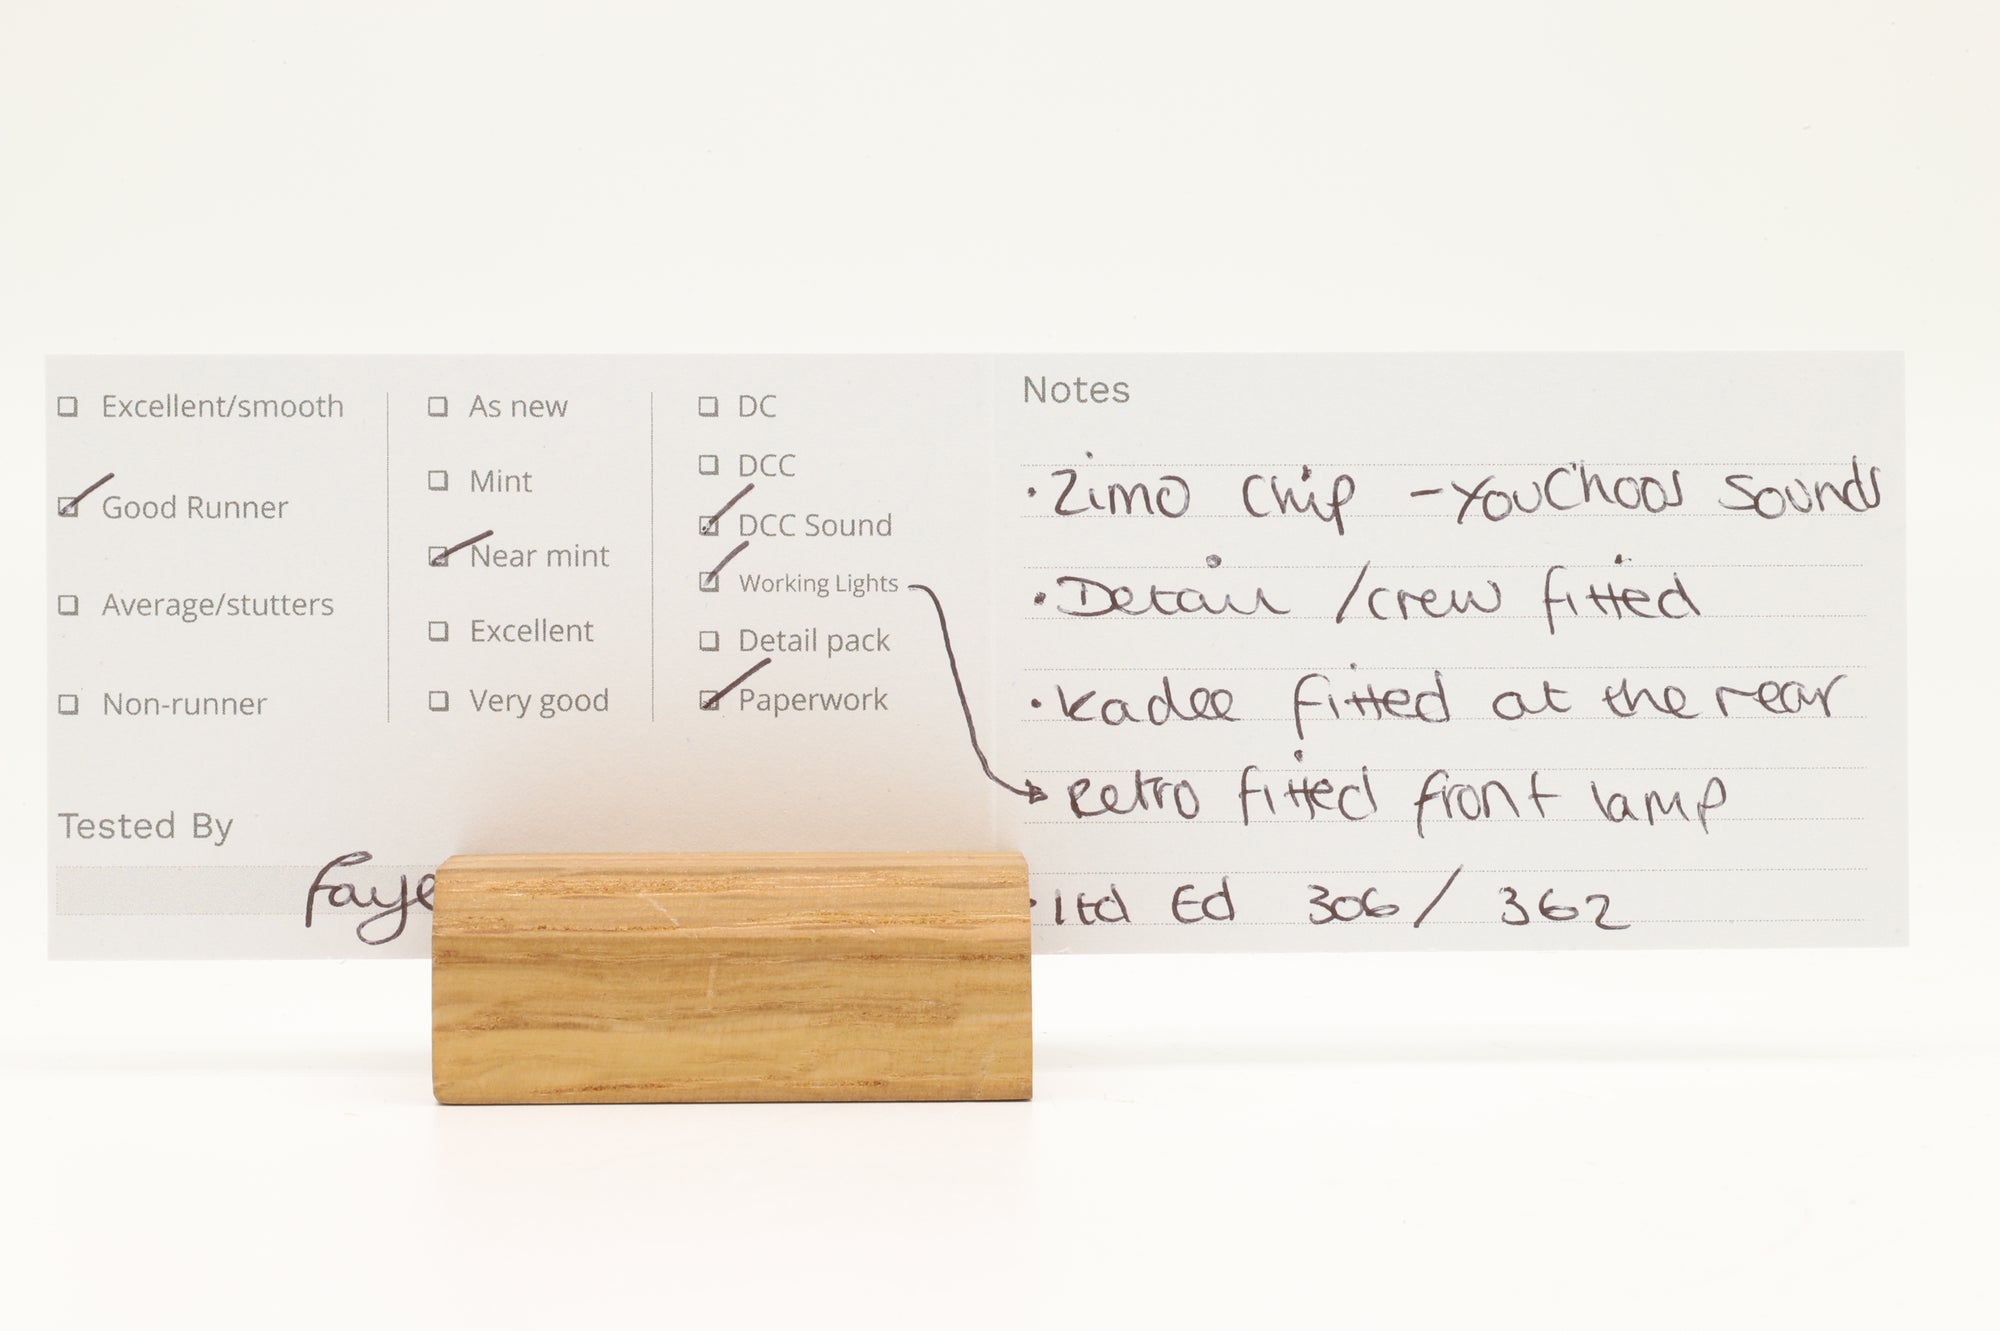 Excellent/smooth
Good Runner
Average/stutters
Non-runner
Tested By
Faye
As new
Mint
Near mint
Excellent
Very good
DC
DCC
DCC Sound
Working Lights
Detail pack
Paperwork
Notes
· Zimo Chip - YouChoos Sounds
· Detail / crew fitted
· Kadee fitted at the rear
Retro fitted front lamp
· Ltd Ed 306 / 362